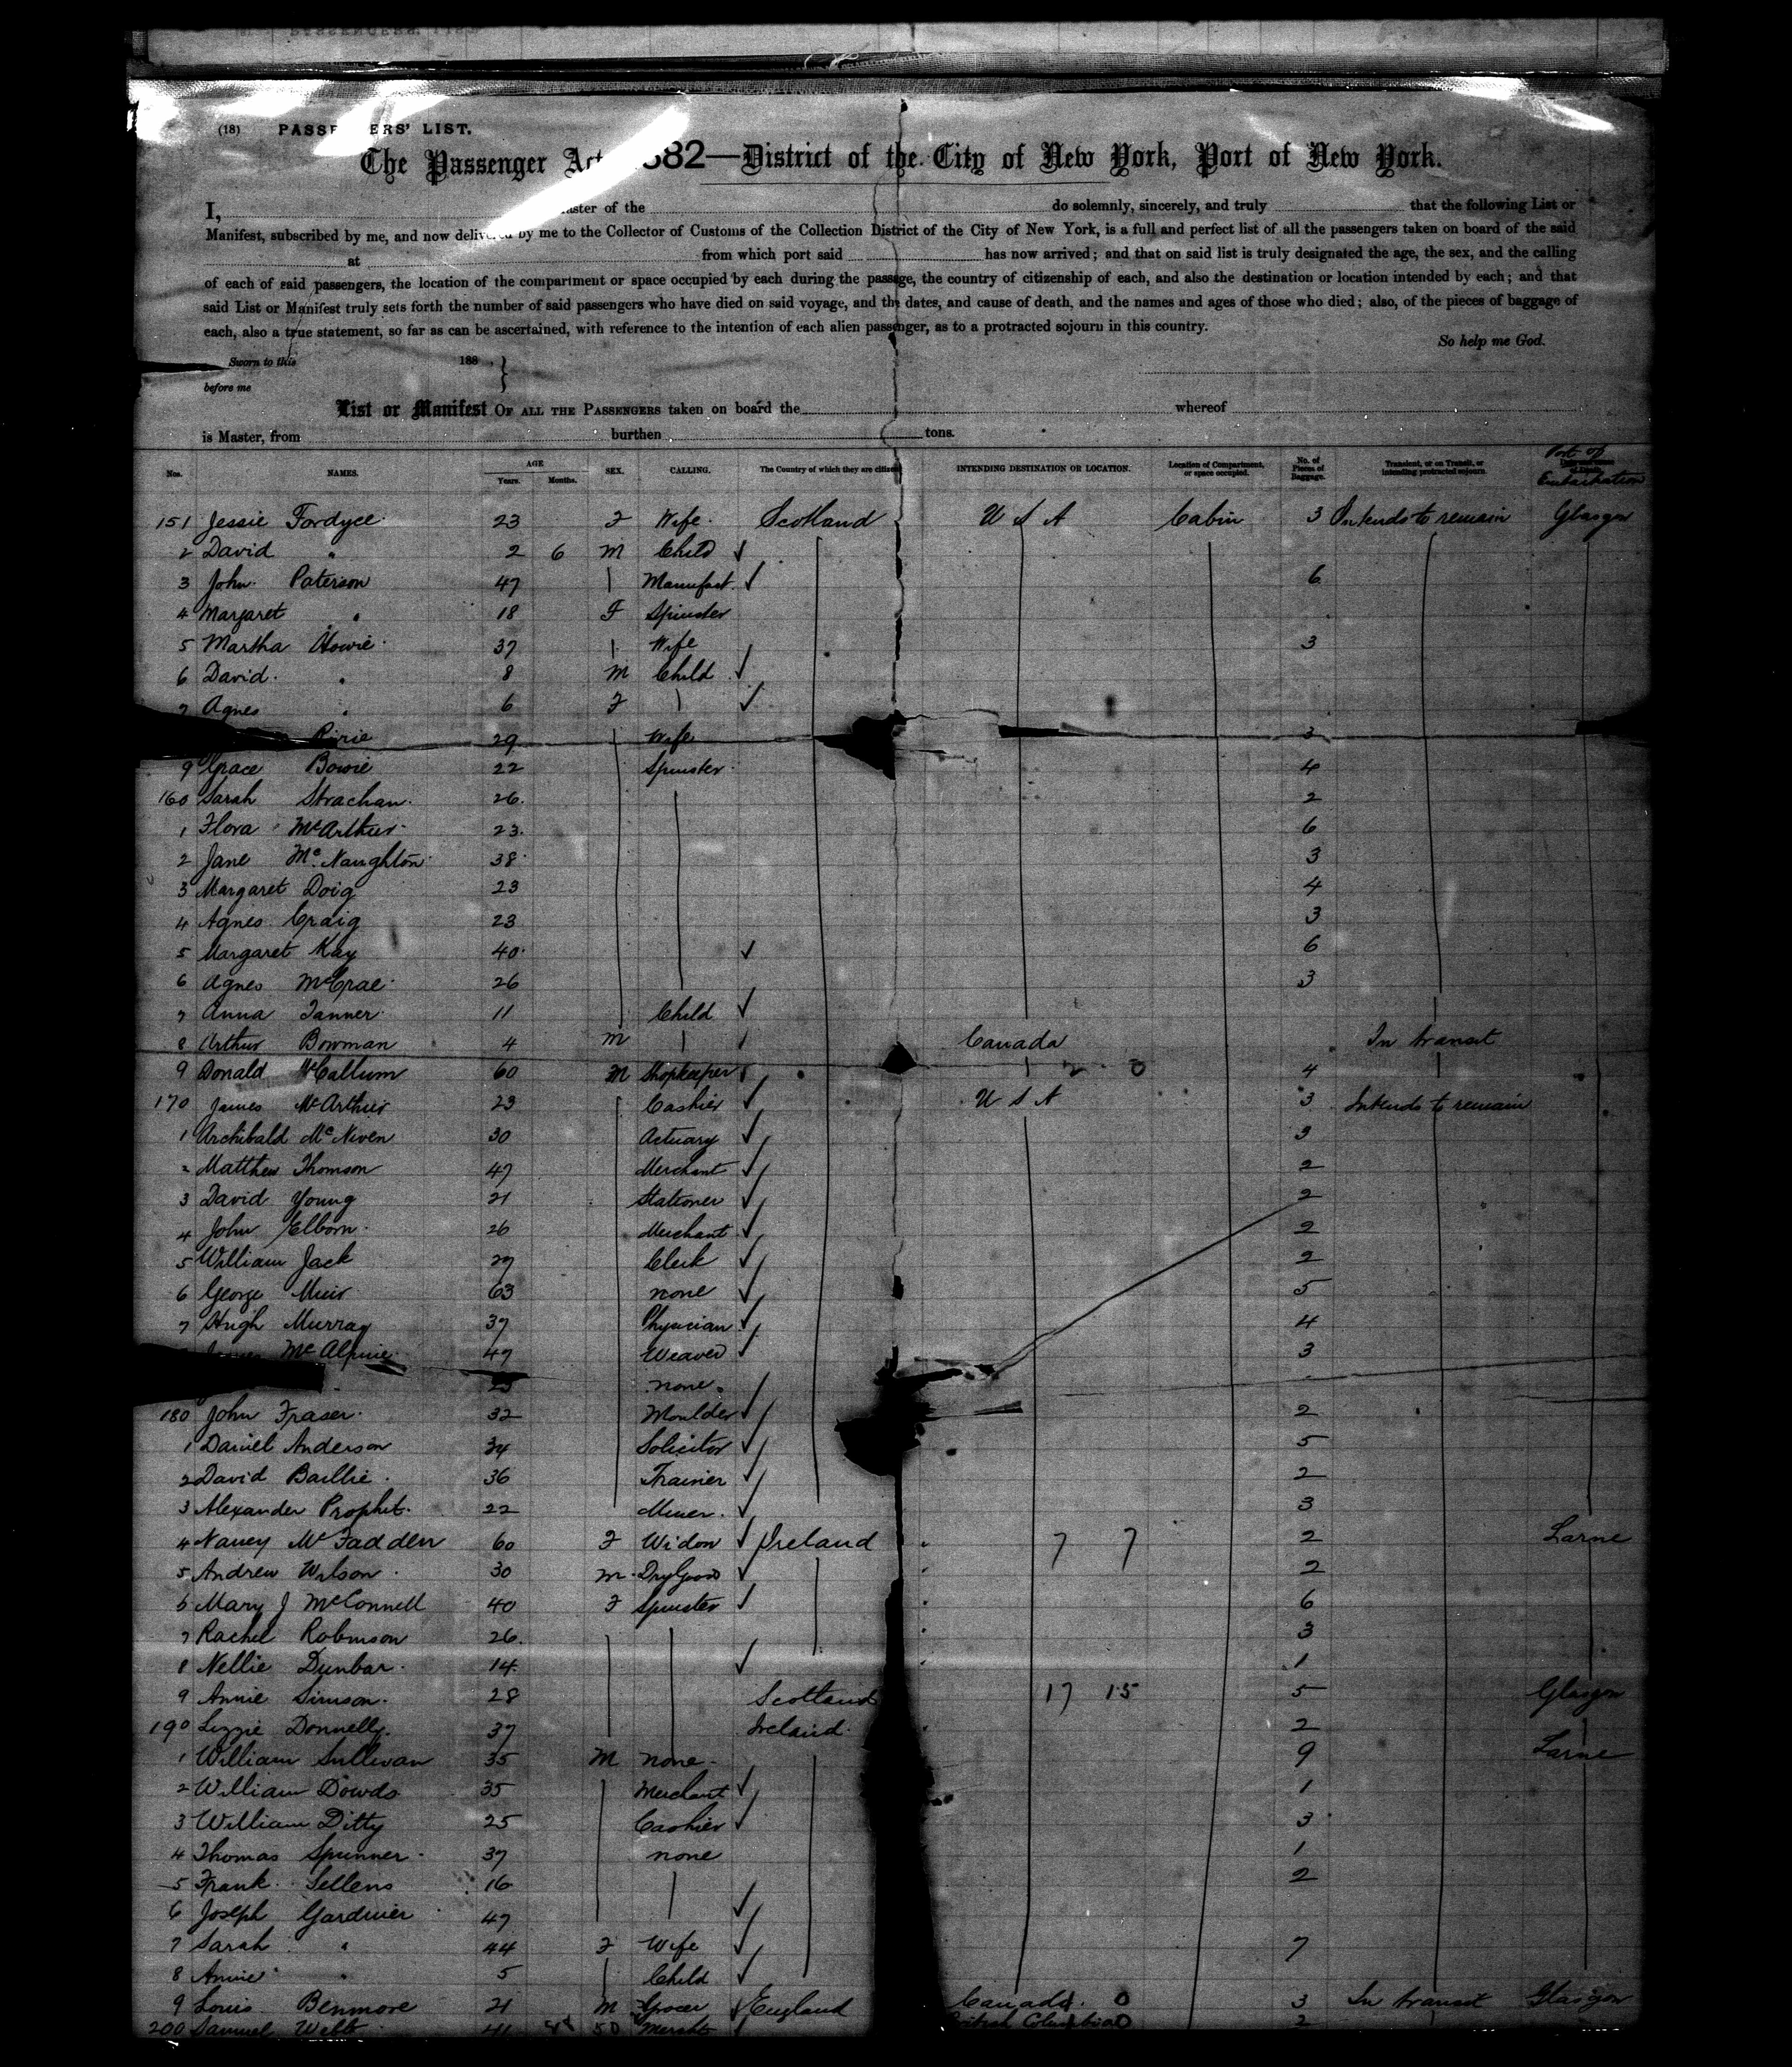 (18) PASS ERS' LIST.
The Passenger Act 882—District of the City of New York, Port of New York.
I, aster of the do solemnly, sincerely, and truly that the following List or
Manifest, subscribed by me, and now delivered by me to the Collector of Customs of the Collection District of the City of New York, is a full and perfect list of all the passengers taken on board of the said
at from which port said has now arrived; and that on said list is truly designated the age, the sex, and the calling
of each of said passengers, the location of the compartment or space occupied by each during the passage, the country of citizenship of each, and also the destination or location intended by each; and that
said List or Manifest truly sets forth the number of said passengers who have died on said voyage, and the dates, and cause of death, and the names and ages of those who died; also, of the pieces of baggage of
each, also a true statement, so far as can be ascertained, with reference to the intention of each alien passenger, as to a protracted sojourn in this country.
So help me God.
Sworn to this 188
before me
List or Manifest OF ALL THE PASSENGERS taken on board the whereof
is Master, from burthen tons.
Nos. NAMES. AGE Years. Months. SEX. CALLING. The Country of which they are citizens INTENDING DESTINATION OR LOCATION. Location of Compartment, or space occupied. No. of Pieces of Baggage. Transient, or in Transit, or intending protracted sojourn. Port of Embarkation
151 Jessie Fordyce 23 F Wife Scotland U S A Cabin 3 Intends to remain Glasgow
2 David " 2 6 M Child
3 John Paterson 47 Manufact. 6
4 Margaret " 18 F Spinster
5 Martha Howie 37 Wife 3
6 David " 8 M Child
7 Agnes " 6 F
Pirie 29 Wife 3
9 Grace Bowie 22 Spinster 4
160 Sarah Strachan 26 2
1 Flora McArthur 23 6
2 Jane McNaughton 38 3
3 Margaret Doig 23 4
4 Agnes Craig 23 3
5 Margaret Kay 40 6
6 Agnes McCrae 26 3
7 Anna Tanner 11 Child
8 Arthur Bowman 4 M Canada In transit
9 Donald McCallum 60 M Shopkeeper 4
170 James McArthur 23 Cashier U S A 3 Intends to remain
1 Archibald McNiven 30 Actuary 3
2 Matthew Thomson 47 Merchant 2
3 David Young 21 Stationer 2
4 John Elborn 26 Merchant 2
5 William Jack 27 Clerk 2
6 George Muir 63 none 5
7 Hugh Murray 37 Physician 4
McAlpine 47 Weaver 3
none
180 John Fraser 32 Moulder 2
1 Daniel Anderson 34 Solicitor 5
2 David Baillie 36 Trainer 2
3 Alexander Prophet 22 Miner 3
4 Nancy McFadden 60 F Widow Ireland 7 7 2 Larne
5 Andrew Wilson 30 M Dry Good 2
6 Mary J McConnell 40 F Spinster 6
7 Rachel Robinson 26 3
8 Nellie Dunbar 14 1
9 Annie Simson 28 Scotland 17 15 5 Glasgow
190 Lizzie Donnelly 37 Ireland 2
1 William Sullivan 35 M none 9 Larne
2 William Dowds 35 Merchant 1
3 William Ditty 25 Cashier 3
4 Thomas Spinner 37 none 1
5 Frank Sellens 16 2
6 Joseph Gardiner 47
7 Sarah " 44 F Wife 7
8 Annie " 5 Child
9 Louis Benmore 21 M Grocer England Canada 0 3 In transit Glasgow
200 Samuel 41 Mercht British Columbia 2